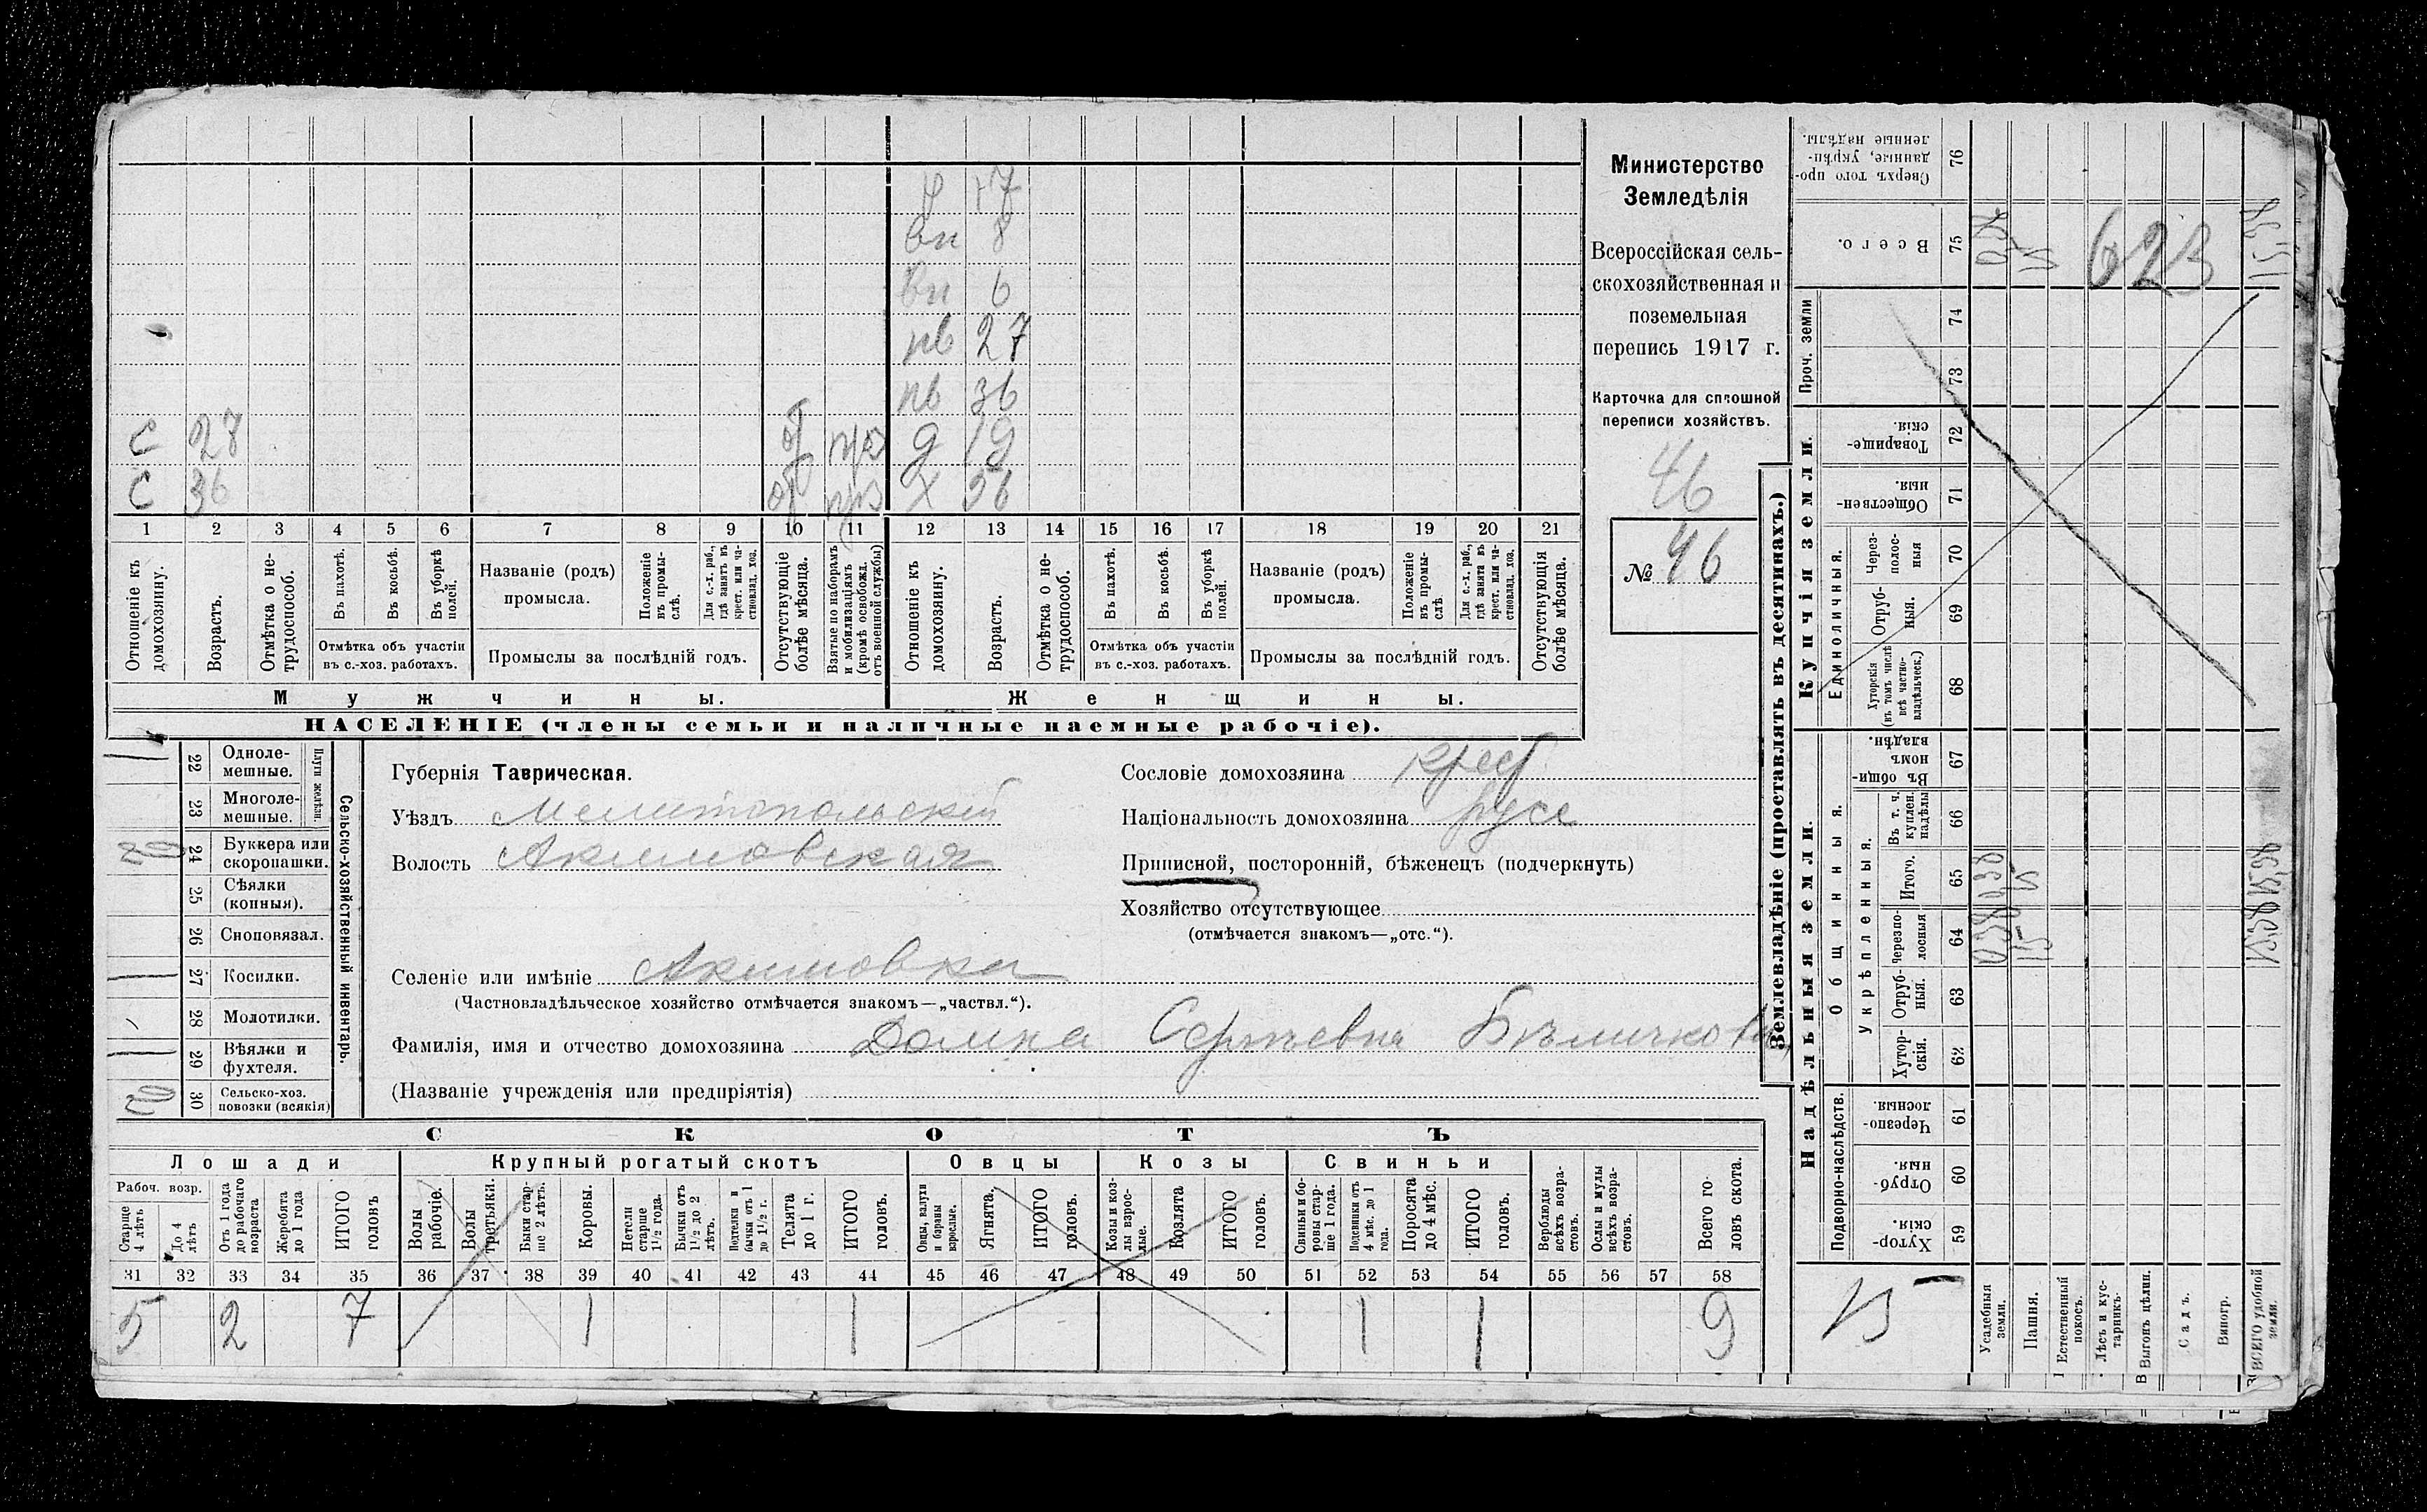 ц 17
вн 8
вн 6
нв 27
нв 36
с 27 от нв д 19
с 36 от нв х 56
1 2 3 4 5 6 7 8 9 10 11 12 13 14 15 16 17 18 19 20 21
Отношеніе къ домохозяину.
Возрастъ.
Отмѣтка о не-
трудоспособ.
Въ пахотѣ.
Въ косьбѣ.
Въ уборкѣ
полей.
Отмѣтка объ участіи
въ с.-хоз. работахъ.
Названіе (родъ)
промысла.
Положеніе
въ промы-
слѣ.
Для с.-х. раб.,
гдѣ занятъ въ
крест. или ча-
стновлад. хоз.
Промыслы за послѣдній годъ.
Отсутствующіе
болѣе мѣсяца.
Взятые по наборамъ
и мобилизаціямъ
(кромѣ освобожд.
отъ военной службы)
Отношеніе къ
домохозяину.
Возрастъ.
Отмѣтка о не-
трудоспособ.
Въ пахотѣ.
Въ косьбѣ.
Въ уборкѣ
полей.
Отмѣтка объ участіи
въ с.-хоз. работахъ.
Названіе (родъ)
промысла.
Положеніе
въ промы-
слѣ.
Для с.-х. раб.,
гдѣ занята въ
крест. или ча-
стновлад. хоз.
Промыслы за послѣдній годъ.
Отсутствующія
болѣе мѣсяца.
Мужчины.
Женщины.
НАСЕЛЕНІЕ (члены семьи и наличные наемные рабочіе).
Министерство
Земледѣлія
Всероссійская сель-
скохозяйственная и
поземельная
перепись 1917 г.
Карточка для сплошной
переписи хозяйствъ.
46
№ 46
22 Одноле-
мешные.
23 Многоле-
мешные.
Плуги желѣзн.
24 Буккера или
скоропашки.
25 Сѣялки
(конныя).
26 Сноповязал.
27 Косилки.
28 Молотилки.
29 Вѣялки и
фухтеля.
2 30 Сельско-хоз.
повозки (всякія)
Сельско-хозяйственный инвентарь.
Губернія Таврическая.
Уѣздъ Мелитопольскій
Волость Акимовская
Сословіе домохозяина крест
Національность домохозяина русс
Приписной, посторонній, бѣженецъ (подчеркнуть)
Хозяйство отсутствующее
(отмѣчается знакомъ—„отс.“).
Селеніе или имѣніе Акимовка
(Частновладѣльческое хозяйство отмѣчается знакомъ—„частвл.“).
Фамилія, имя и отчество домохозяина Домна Сергѣевна Бѣличкова
(Названіе учрежденія или предпріятія)
СКОТЪ
Лошади
Крупный рогатый скотъ
Овцы
Козы
Свиньи
Рабоч. возр.
Старше
4 лѣтъ
До 4
лѣтъ
Отъ 1 года
до рабочаго
возраста
Жеребята
до 1 года
ИТОГО
головъ
Волы
рабочіе.
Волы
третьяки.
Быки стар-
ше 2 лѣтъ.
Коровы.
Нетели
старше
1½ года.
Бычки отъ
1½ до 2
лѣтъ.
Подтелки и
бычки отъ 1
до 1½ г.
Телята
до 1 г.
ИТОГО
головъ.
Овцы, валухи
и бараны
взрослые.
Ягнята.
ИТОГО
головъ.
Козы и коз-
лы взрос-
лые.
Козлята
ИТОГО
головъ.
Свиньи и бо-
ровы стар-
ше 1 года.
Подсвинки отъ
4 мѣс. до 1
года.
Поросята
до 4 мѣс.
ИТОГО
головъ.
Верблюды
всѣхъ возра-
стовъ.
Ослы и мулы
всѣхъ возра-
стовъ.
Всего го-
ловъ скота.
31 32 33 34 35 36 37 38 39 40 41 42 43 44 45 46 47 48 49 50 51 52 53 54 55 56 57 58
5 2 7 1 1 1 1 9
Землевладѣніе (проставлять въ десятинахъ.)
Надѣльныя земли.
Купчія земли.
Проч. земли
Подворно-наслѣдств.
Общинныя.
укрѣпленныя.
Единоличныя.
Сверхъ того про-
данные, укрѣп-
ленные надѣлы.
76
Всего.
75
74
73
Товарище-
скія.
72
Обществен-
ныя.
71
Через-
полос-
ныя
70
Отруб-
ныя.
69
Хуторскія
(въ томъ числѣ
всѣ частно-
владѣльческ.)
68
Въ общи-
номъ
владѣн.
67
Въ т. ч.
куплен.
надѣлы
66
Итого.
65
Черезпо-
лосныя
64
Отруб-
ныя.
63
Хутор-
скія.
62
Черезпо-
лосныя.
61
Отруб-
ныя.
60
Хутор-
скія.
59
623
15
Усадебныя
земли.
Пашня.
Естественный
покосъ.
Лѣсъ и кус-
тарникъ.
Выгонъ цѣлин.
Садъ.
Виногр.
ВСЕГО удобной
земли.